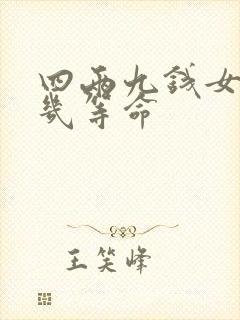 四两九钱女
几等命
王笑峰